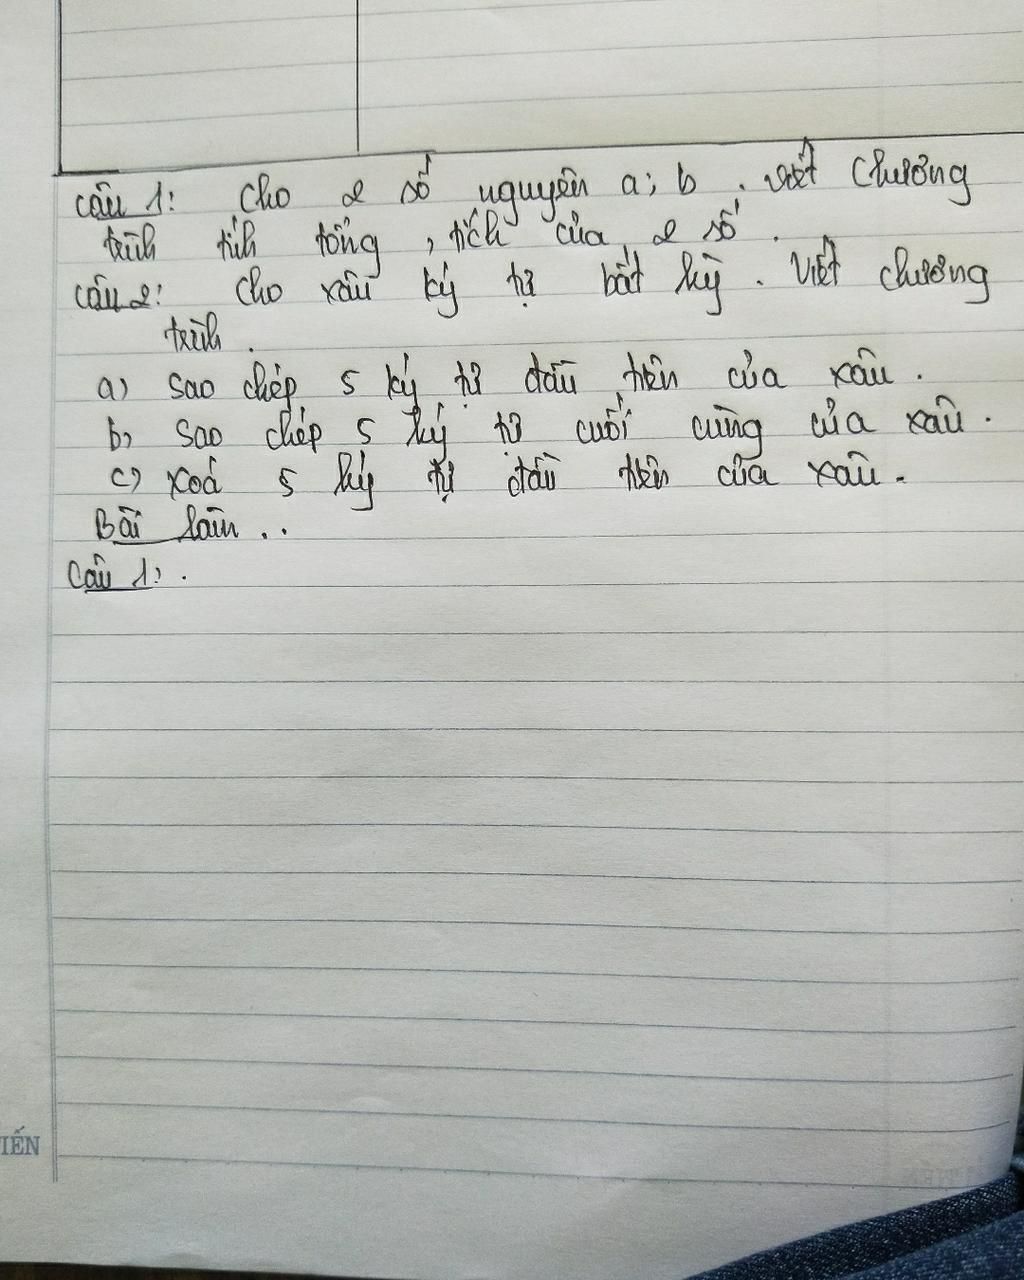 Câu 1: Cho 2 số nguyên a; b. Viết Chương
trình tính tổng, tích của 2 số.
Câu 2: Cho xâu ký tự bất kỳ. Viết chương
trình.
a) Sao chép 5 ký tự đầu tiên của xâu.
b) Sao chép 5 ký tự cuối cùng của xâu.
c) Xoá 5 ký tự đầu tiên của xâu.
Bài làm..
Câu 1:.
IẾN